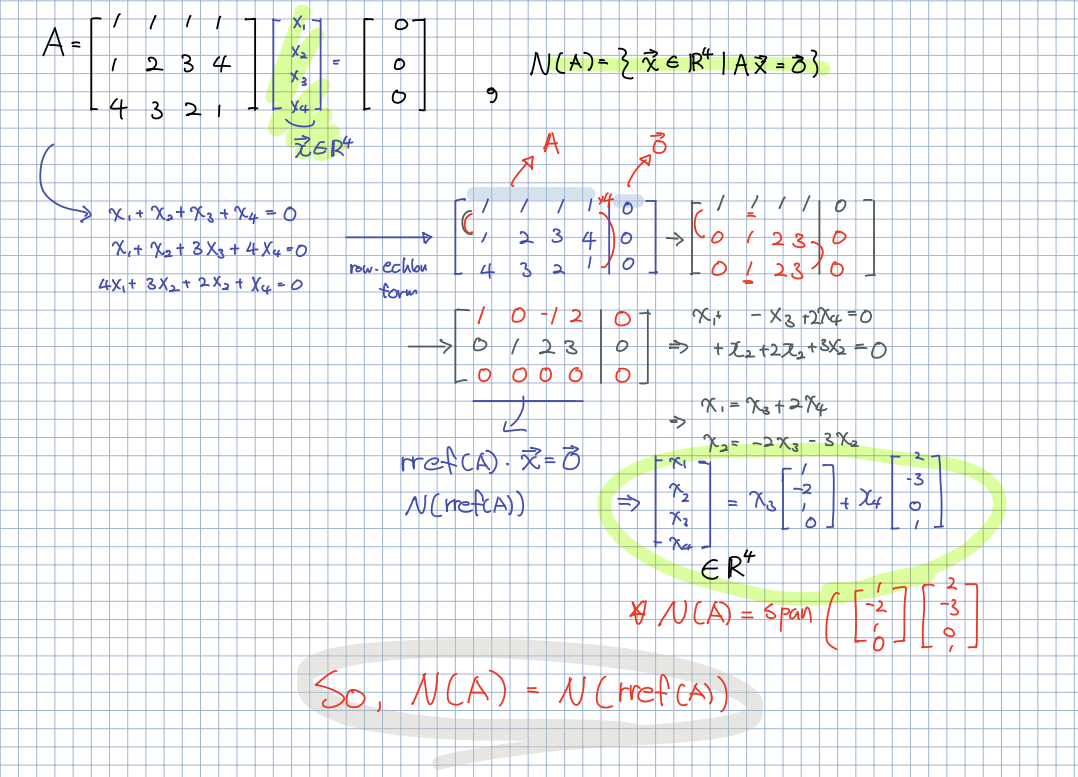 A = [ 1 1 1 1 ; 1 2 3 4 ; 4 3 2 1 ] [ x₁ ; x₂ ; x₃ ; x₄ ] = [ 0 ; 0 ; 0 ] , N(A) = { x⃗ ∈ R⁴ | A x⃗ = 0⃗ }
x⃗ ∈ R⁴
A 0⃗
x₁ + x₂ + x₃ + x₄ = 0
x₁ + x₂ + 3x₃ + 4x₄ = 0
4x₁ + 3x₂ + 2x₂ + x₄ = 0
→ row-echlon
form
[ 1 1 1 1 | 0 ; 1 2 3 4 | 0 ; 4 3 2 1 | 0 ] → [ 1 1 1 1 | 0 ; 0 1 2 3 | 0 ; 0 1 2 3 | 0 ]
×4
→ [ 1 0 -1 2 | 0 ; 0 1 2 3 | 0 ; 0 0 0 0 | 0 ] ⇒
x₁+ - x₃ +2x₄ = 0
+ x₂ + 2x₂ + 3x₂ = 0
⇒ x₁ = x₃ + 2x₄
x₂ = -2x₃ - 3x₂
rref(A) · x⃗ = 0⃗
N(rref(A))
⇒ [ x₁ ; x₂ ; x₃ ; x₄ ] = x₃ [ 1 ; -2 ; 1 ; 0 ] + x₄ [ 2 ; -3 ; 0 ; 1 ]
∈ R⁴
N(A) = span ( [ 1 ; -2 ; 1 ; 0 ] [ 2 ; -3 ; 0 ; 1 ]
So, N(A) = N(rref(A))